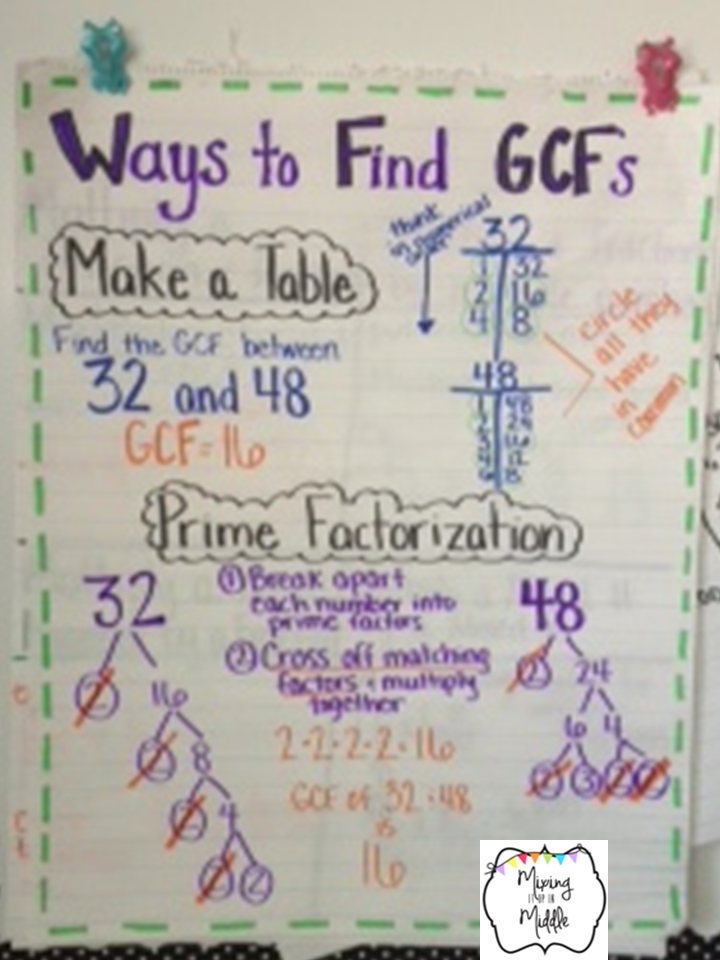 Ways to Find GCFs
Make a Table
Find the GCF between
32 and 48
GCF=16
think
in numerical
32
1 32
2 16
4 8
48
1 48
2 24
3 16
4 12
6 8
circle
all they
have
in
common
Prime Factorization
32
2 16
2 8
2 4
2 2
① Break apart
each number into
prime factors
② Cross off matching
factors & multiply
together
2·2·2·2=16
GCF of 32 & 48
is
16
48
2 24
6 4
2 3 2 2
Mixing
IT UP IN
Middle